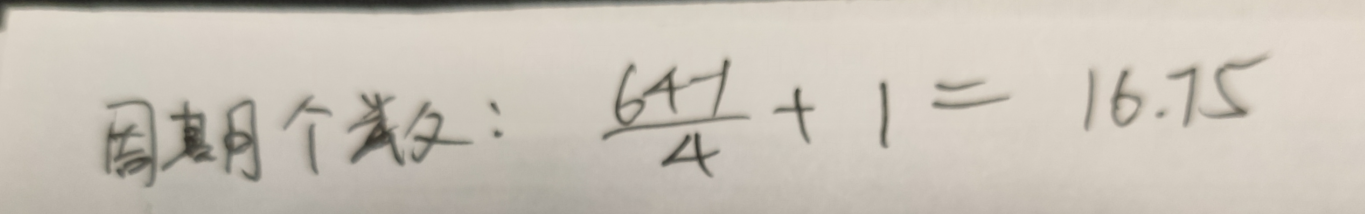 周期个数: \frac{64-1}{4} + 1 = 16.75